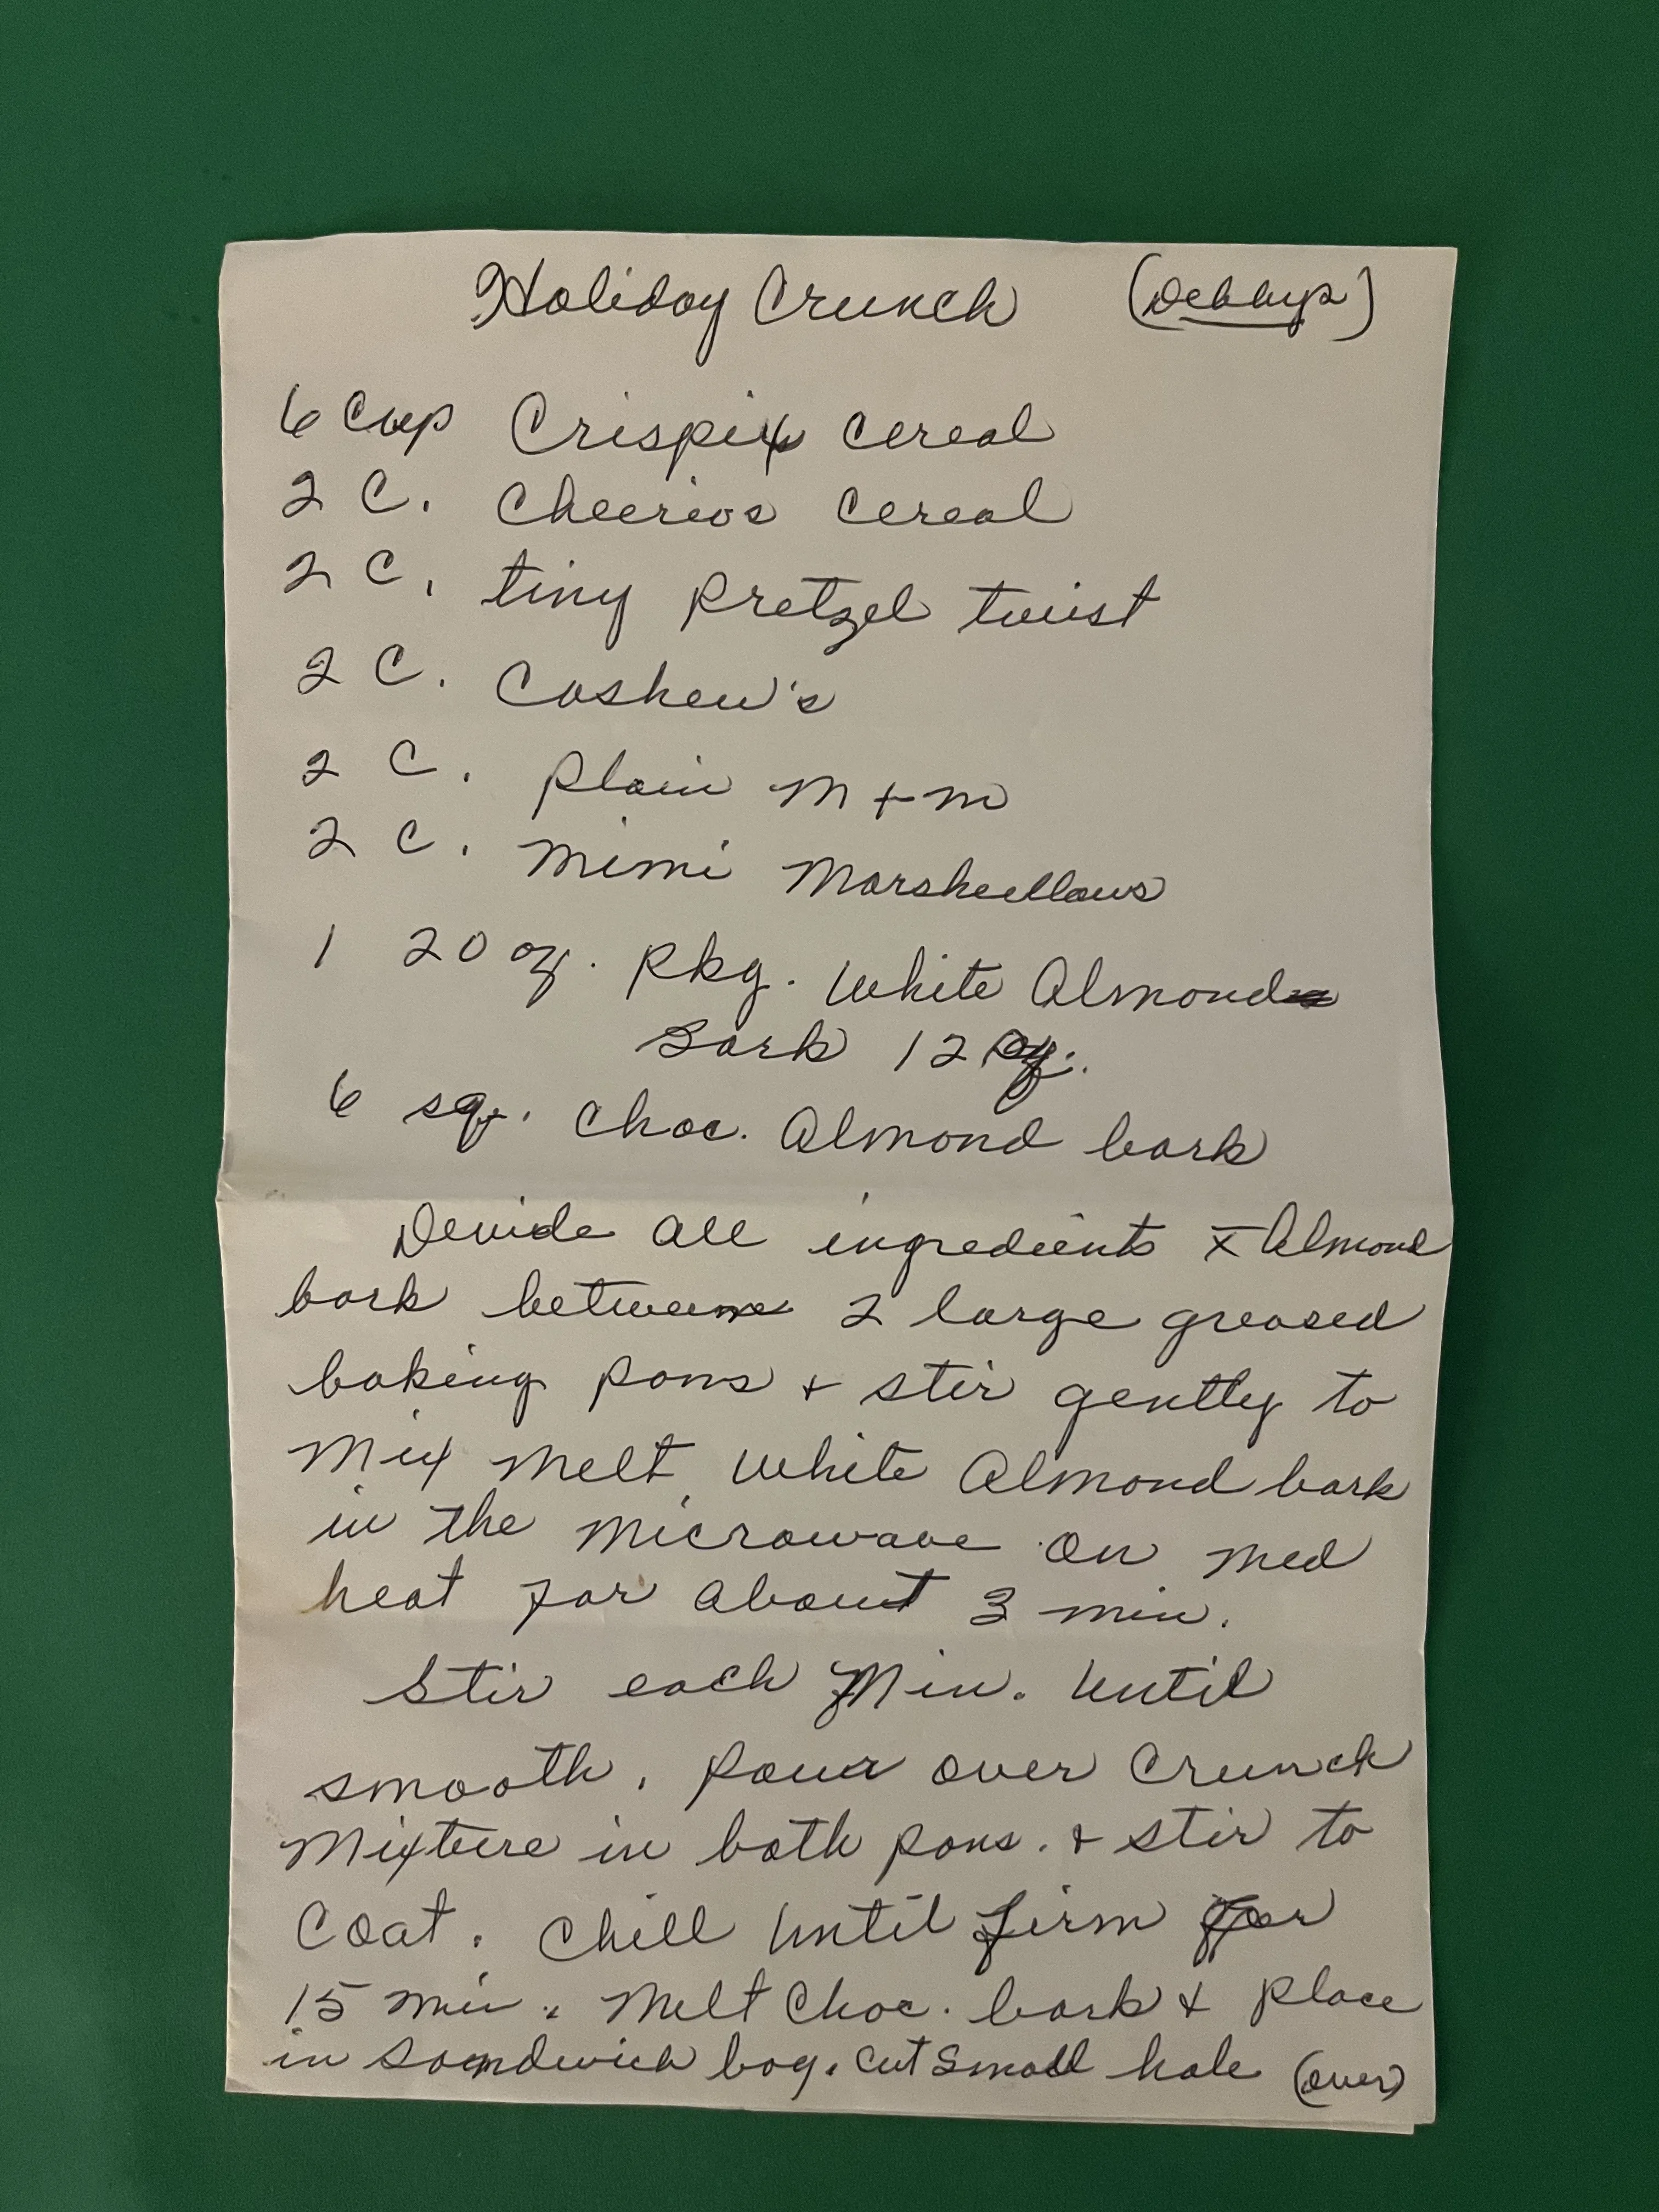 Holiday Crunch (Debbys)
6 Cup Crispix Cereal
2 C. Cheerios Cereal
2 C. tiny pretzel twist
2 C. Cashew's
2 C. Plain M+M
2 C. Mimi Marshellows
1 20 oz. pkg. White Almond
Bark 12 oz.
6 sq. Choc. Almond bark
Devide all ingredients x Almond
bark between 2 large greased
baking pans + stir gently to
Mix Melt White Almond bark
in the Microwave on med
heat for about 3 min.
Stir each Min. Until
smooth. Pour over Crunch
Mixture in both pans. + stir to
Coat. Chill Until firm for
15 min. Melt Choc. bark + place
in Sandwich bag. Cut Small hole (over)